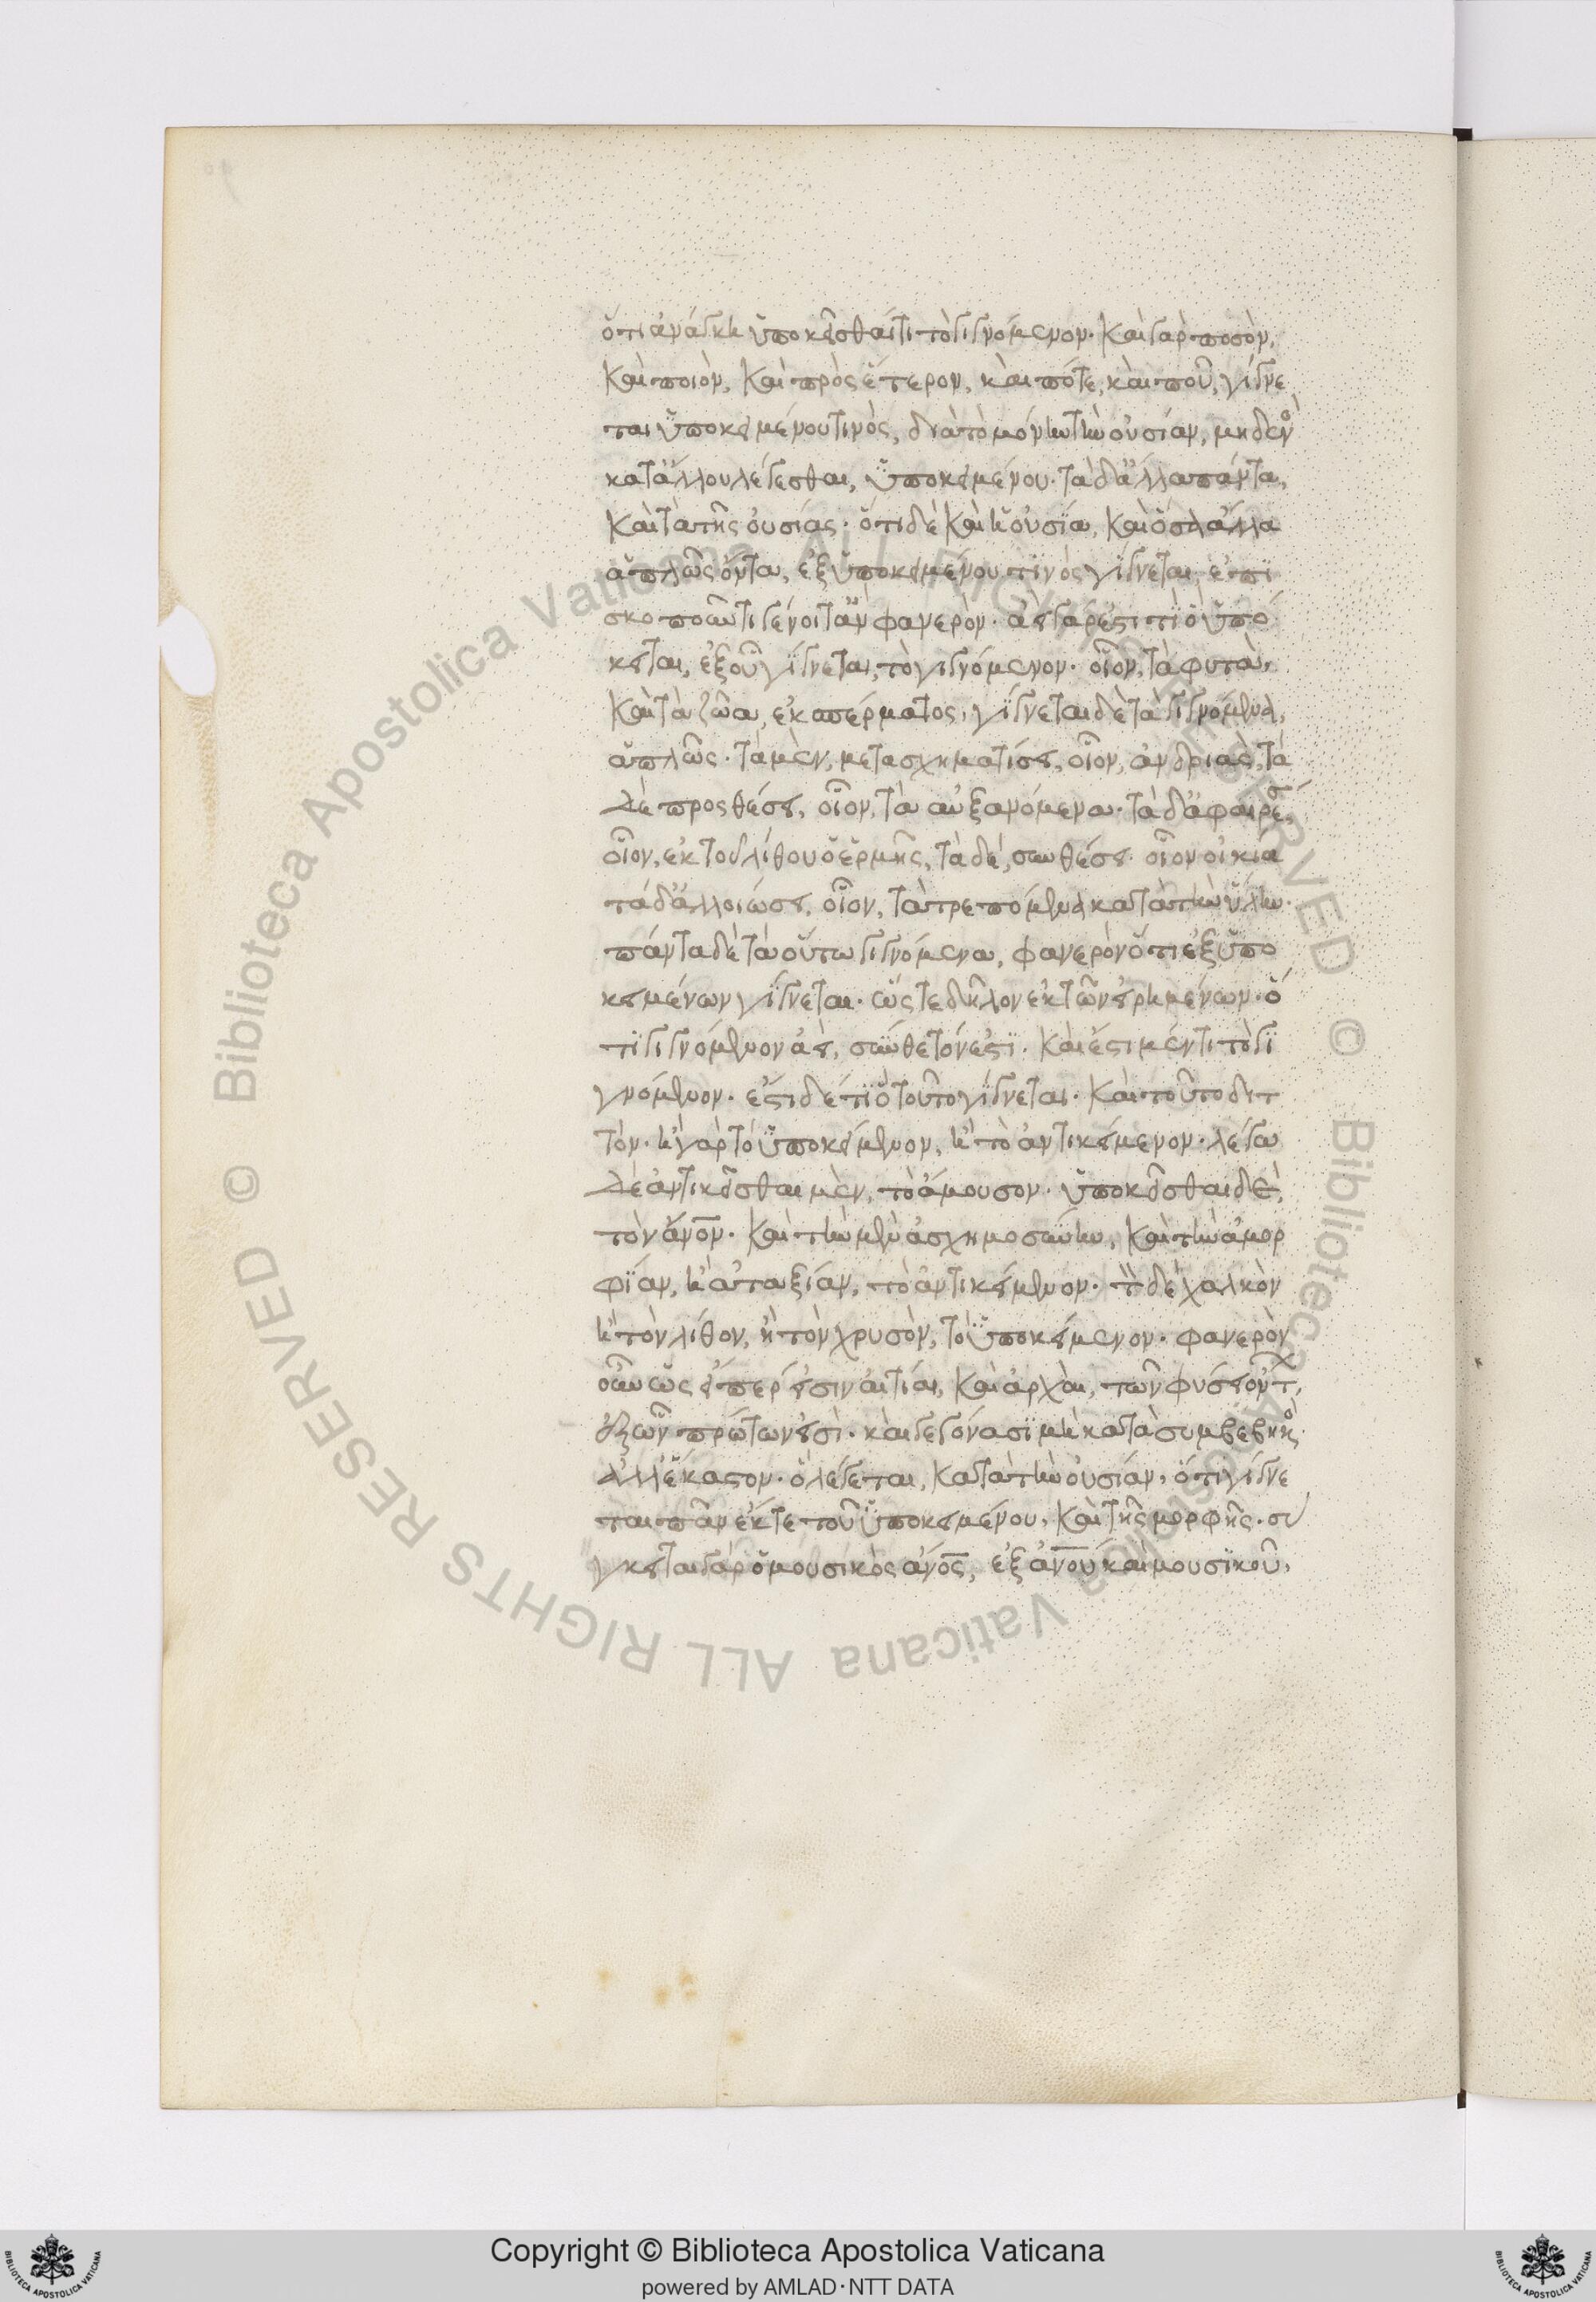 ὅτι ἀνάγκη ὑποκεῖσθαί τι τὸ γιγνόμενον· καὶ γὰρ ποσὸν,
καὶ ποιὸν, καὶ πρὸς ἕτερον, καὶ πότε, καὶ ποῦ, γίγνε
ται ὑποκειμένου τινὸς, διὰ τὸ μόνην τὴν οὐσίαν, μηδενὸ
κατ' ἄλλου λέγεσθαι, ὑποκειμένου· τὰ δ' ἄλλα πάντα,
κατὰ τῆς οὐσίας· ὅτι δὲ καὶ ἡ οὐσία, καὶ ὅσα ἄλλα
ἁπλῶς ὄντα, ἐξ ὑποκειμένου τινὸς γίγνεται, ἐπι
σκοποῦντι γένοιτ' ἂν φανερὸν· ἀεὶ γάρ ἐστι τὶ ὃ ὑπό
κειται, ἐξ οὗ γίγνεται, τὸ γιγνόμενον· οἷον, τὰ φυτὰ,
καὶ τὰ ζῶα, ἐκ σπέρματος, γίγνεται δὲ τὰ γιγνόμενα,
ἁπλῶς· τὰ μὲν, μετασχηματίσει, οἷον, ἀνδριὰς, τὰ
δὲ προσθέσει, οἷον, τὰ αὐξανόμενα· τὰ δ' ἀφαιρέσ,
οἷον, ἐκ τοῦ λίθου ὁ ἑρμῆς, τὰ δὲ, συνθέσει· οἷον οἰκία
τὰ δ' ἀλλοιώσει, οἷον, τὰ τρεπόμενα κατὰ τὴν ὕλην·
πάντα δὲ τὰ οὕτω γιγνόμενα, φανερὸν ὅτι ἐξ ὑπο
κειμένων γίγνεται· ὥστε δῆλον ἐκ τῶν εἰρημένων· ὅ
τι γιγνόμενον ἀεὶ, σύνθετόν ἐστι· καὶ ἔστι μέν τι τὸ γι
γνόμενον· ἔστι δέ τι ὃ τοῦτο γίγνεται· καὶ τοῦτο διτ
τόν· ἢ γὰρ τὸ ὑποκείμενον, ἢ τὸ ἀντικείμενον· λέγω
δὲ ἀντικεῖσθαι μὲν, τὸ ἄμουσον· ὑποκεῖσθαι δὲ,
τὸν ἄνον· καὶ τὴν μὲν ἀσχημοσύνην, καὶ τὴν ἀμορ
φίαν, ἢ ἀταξίαν, τὸ ἀντικείμενον· τὸν δὲ χαλκὸν
ἢ τὸν λίθον, ἢ τὸν χρυσὸν, τὸ ὑποκείμενον· φανερὸν
οὖν ὡς εἴπερ εἰσὶν αἰτίαι, καὶ ἀρχαὶ, τῶν φύσει ὄντ,
ἐξ ὧν πρώτων εἰσὶ· καὶ γεγόνασι μὴ κατὰ συμβεβηκὸς·
ἀλλ' ἕκαστον· ὃ λέγεται, κατὰ τὴν οὐσίαν, ὅτι γίγνε
ται πᾶν ἔκ τε τοῦ ὑποκειμένου, καὶ τῆς μορφῆς· σύ
γκειται γὰρ ὁ μουσικὸς ἄνος, ἐξ ἀνου καὶ μουσικοῦ,
Copyright © Biblioteca Apostolica Vaticana
powered by AMLAD·NTT DATA
© Biblioteca Apostolica Vaticana ALL RIGHTS RESERVED © Biblioteca Apostolica Vaticana ALL RIGHTS RESERVED